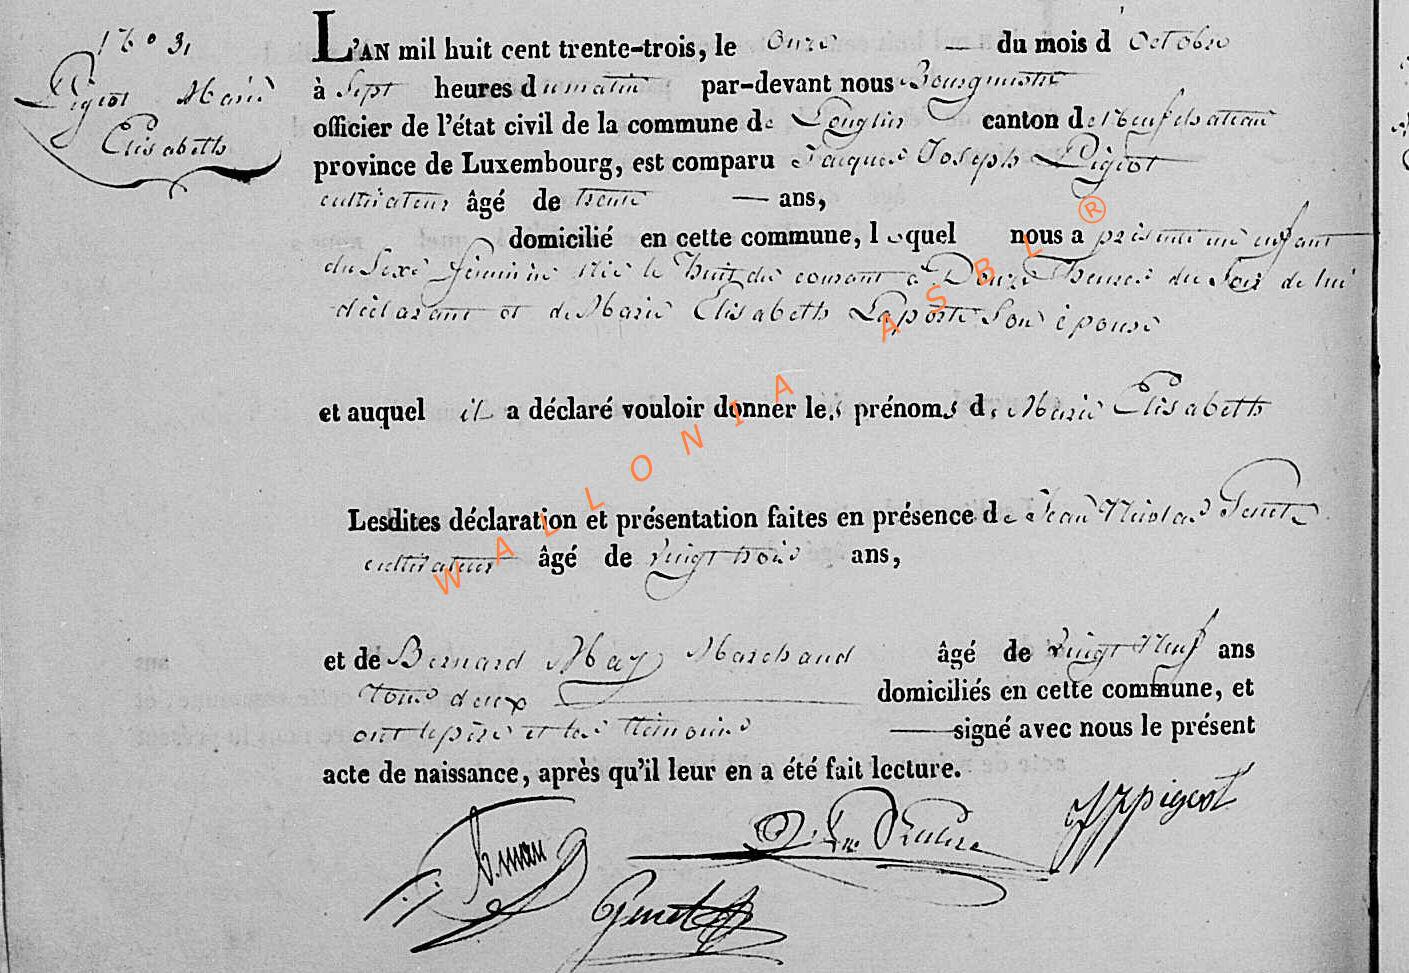 N° 31
Pigeot Marie
Elisabeth
L'AN mil huit cent trente-trois, le onze — du mois d'octobre
à sept heures du matin par-devant nous Bourgmestre
officier de l'état civil de la commune de Longlier canton de Neufchateau
province de Luxembourg, est comparu Jacques Joseph Pigeot
cultivateur âgé de trente — ans,
domicilié en cette commune, lequel nous a présenté un enfant
du sexe féminin née le huit du courant à Douze heures du soir de lui
déclarant et de Marie Elisabeth Laporte son épouse
et auquel il a déclaré vouloir donner les prénoms de Marie Elisabeth
Lesdites déclaration et présentation faites en présence de Jean Nicolas
cultivateur âgé de vingt trois ans,
et de Bernard May Marchand âgé de vingt neuf ans
tous deux domiciliés en cette commune, et
ont le père et les témoins — signé avec nous le présent
acte de naissance, après qu'il leur en a été fait lecture.
JJ pigeot
WALLONIA ASBL ®